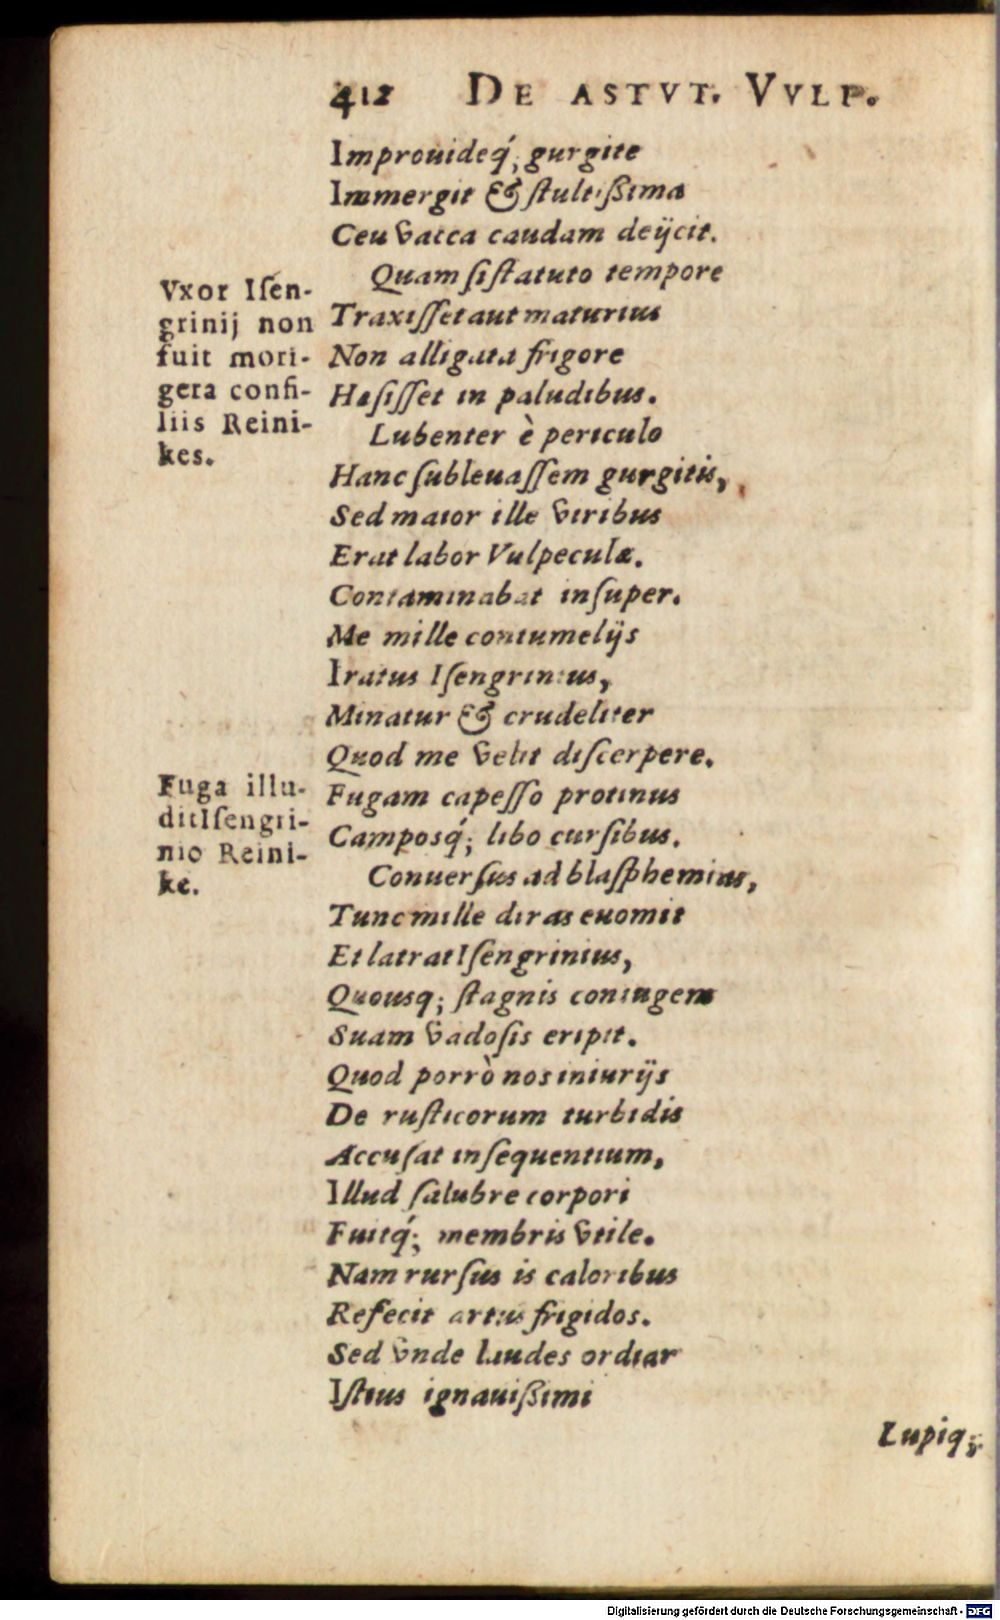 412 DE ASTVT. VVLP.
Improuideq́; gurgite
Immergit & ſtultiſsima
Ceu vacca caudam deijcit.
Quam ſi ſtatuto tempore
Traxiſſet aut maturius
Non alligata frigore
Hæſiſſet in paludibus.
Lubenter è periculo
Hanc ſubleuaſſem gurgitis,
Sed maior ille viribus
Erat labor Vulpeculæ.
Contaminabat inſuper.
Me mille contumelijs
Iratus Iſengrinius,
Minatur & crudeliter
Quod me velit diſcerpere.
Fugam capeſſo protinus
Camposq́; libo curſibus.
Conuerſus ad blaſphemias,
Tunc mille diras euomit
Et latrat Iſengrinius,
Quousq; ſtagnis coniugem
Suam vadoſis eripit.
Quod porrò nos iniurijs
De ruſticorum turbidis
Accuſat inſequentium,
Illud ſalubre corpori
Fuitq́; membris vtile.
Nam rurſus is caloribus
Refecit artus frigidos.
Sed vnde laudes ordiar
Iſtius ignauiſsimi
Lupiq;
Vxor Iſen-
grinij non
fuit mori-
gera conſi-
liis Reini-
kes.
Fuga illu-
dit Iſengri-
nio Reini-
ke.
Digitalisierung gefördert durch die Deutsche Forschungsgemeinschaft - DFG